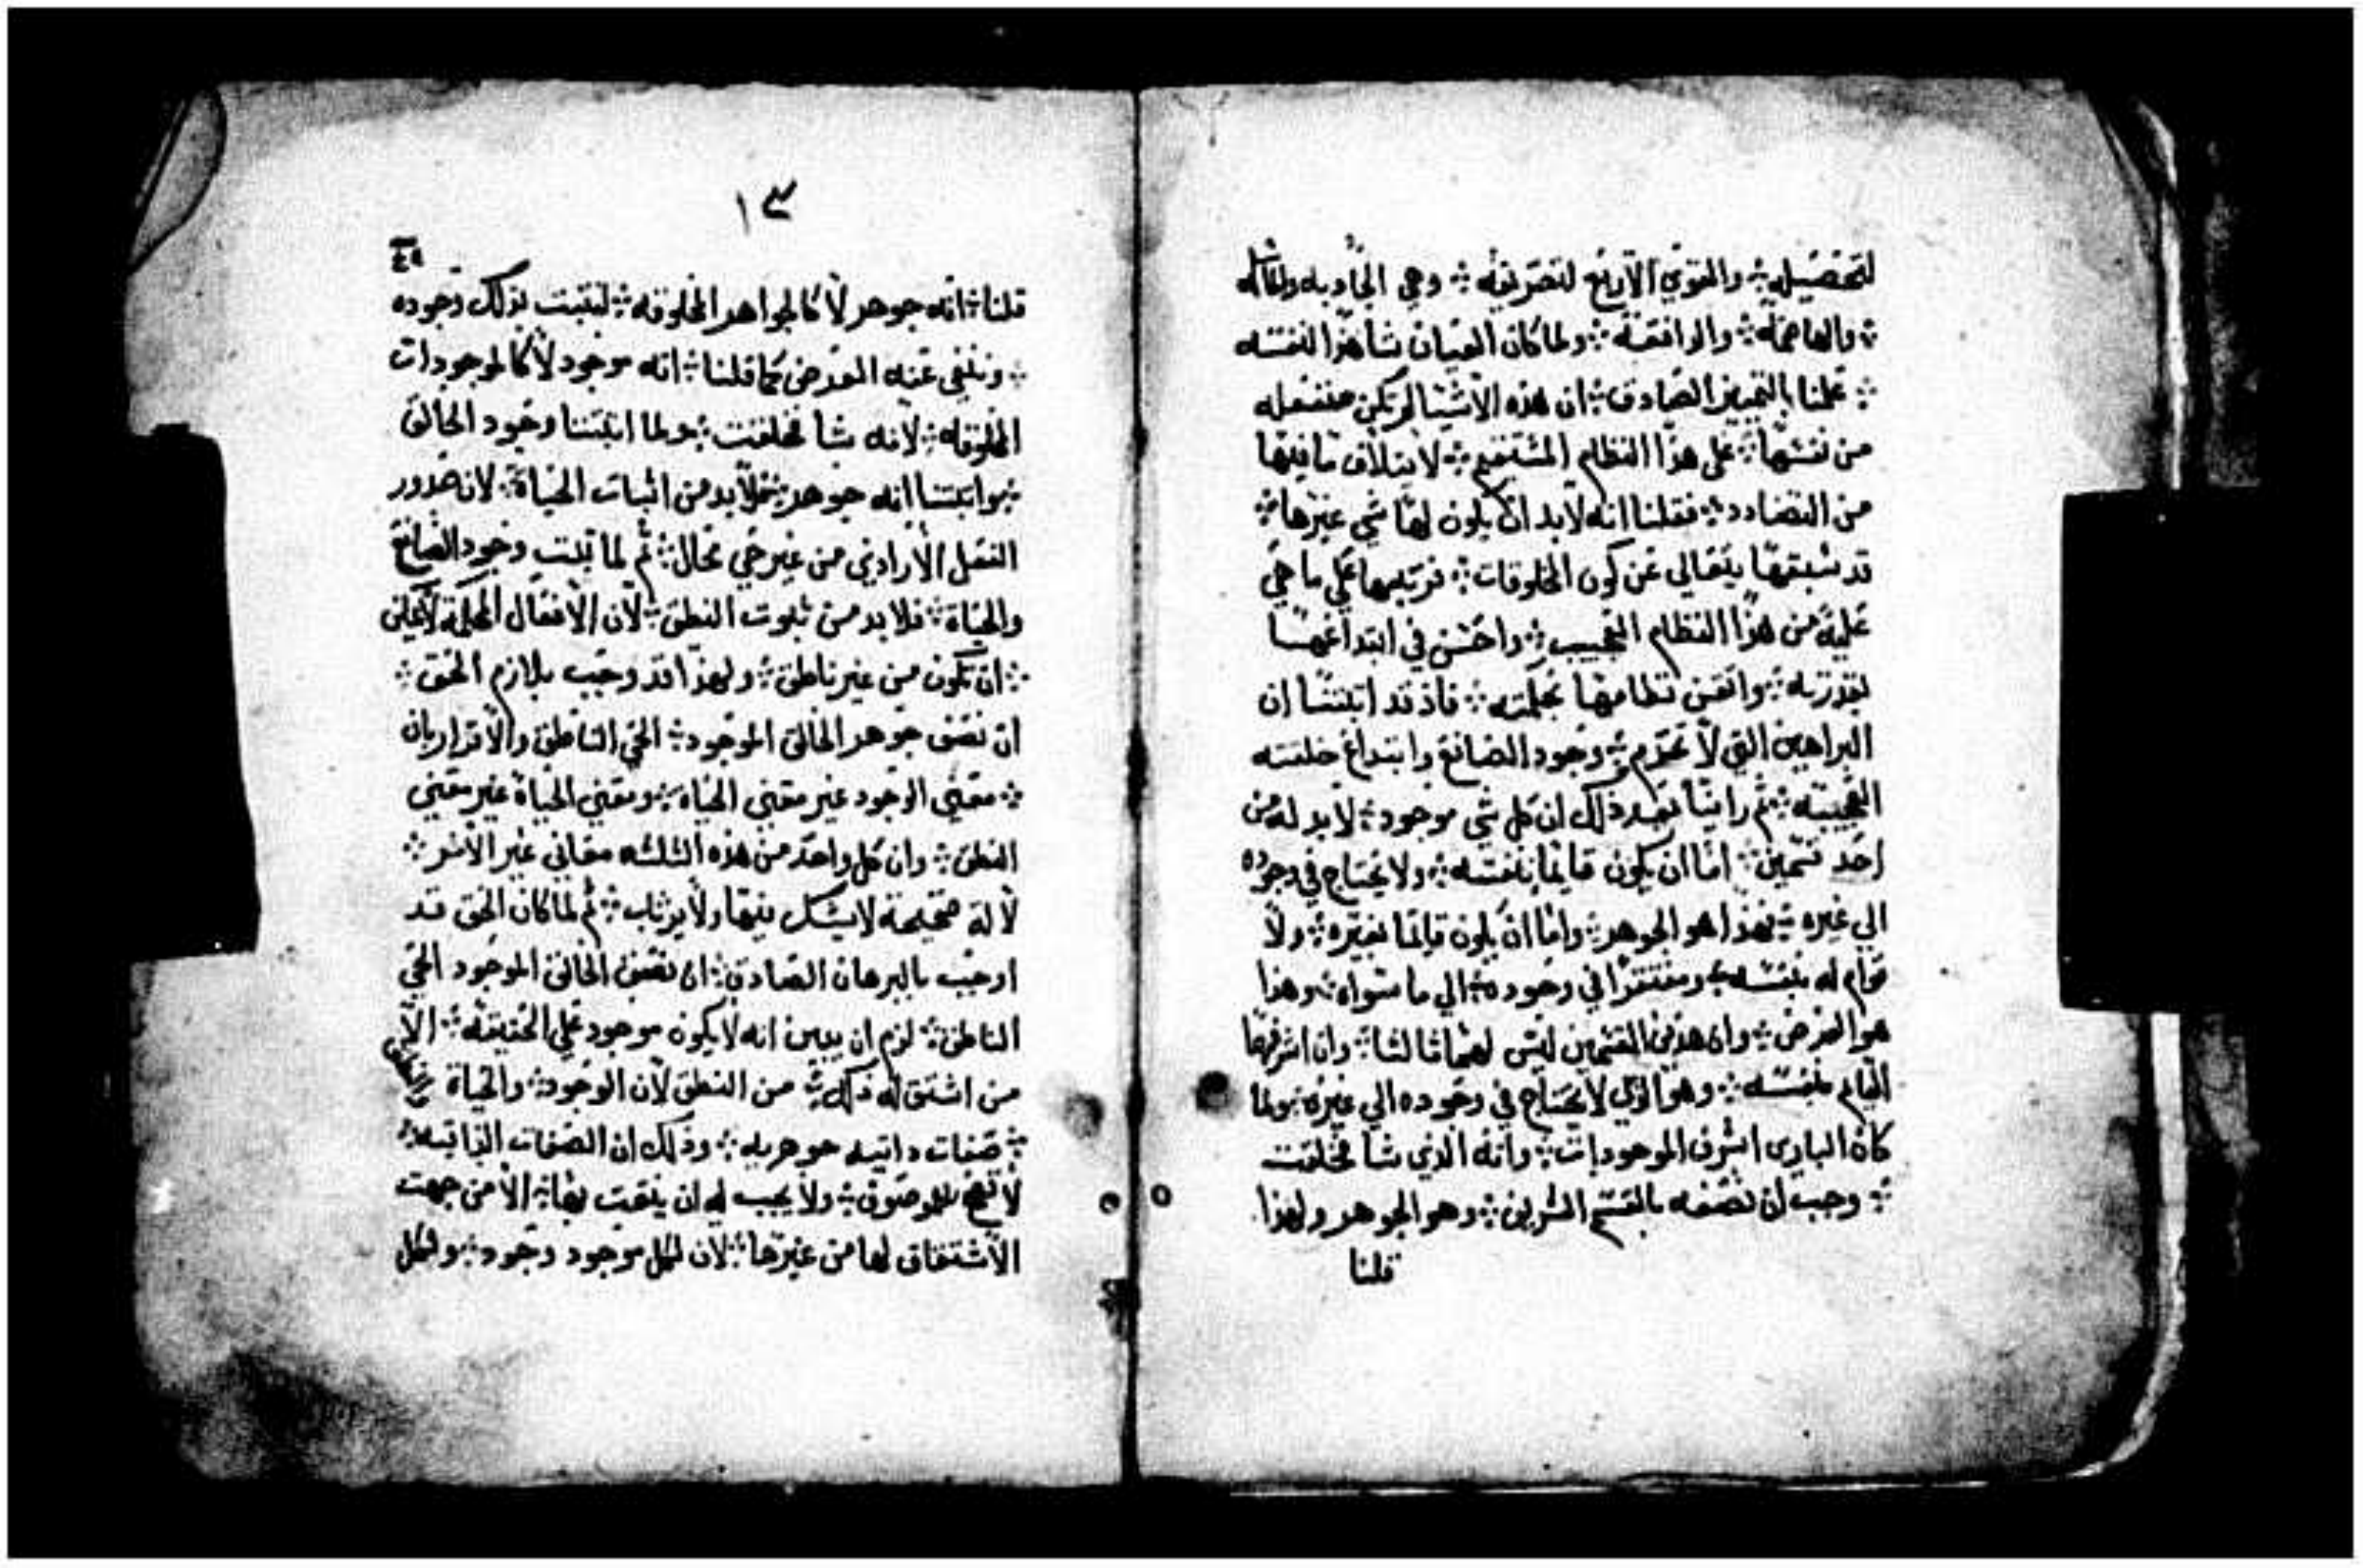 لتحصيله ܀ والقوي الأربع لتصريفه ܀ وهي الجادبه والماسكه
܀ والهاضمه ܀ والدافعه ܀ ولما كان العيان شاهدا لنفسه
܀ علمنا بالتمييز الصادق ܀ ان هذه الاشيا لم تكن منفعله
من نفسها ܀ على هذا النظام المستقيم ܀ لايتلاف ما فيها
من التضادد ܀ فقلنا انه لابد ان يكون لها شي غيرها ܀
قد سبقها يتعالي عن كون المخلوقات ܀ فرتبها علي ما هي
عليه من هذا النظام العجيب ܀ واحسن في ابتداعها
بقدرته ܀ واتقن نظامها بحكمته ܀ فاذ قد اتبتنا ان
البراهين التي لا تخرم ܀ وجود الصانع وابتداع خلقته
العجيبه ܀ ثم راينا بعد ذلك ان كل شي موجود ܀ لابد له من
احد قسمين ܀ اما ان يكون قايما بنفسه ܀ ولا يحتاج في وجوده
الي غيره ܀ فهذا هو الجوهر ܀ واما ان يكون قايما بغيره ܀ ولا
قوام له بنفسه ܀ ومفتقرا في وجوده ܀ الي ما سواه ܀ وهذا
هو العرض ܀ وان هذين القسمين ليس لهما ثالثا ܀ وان اشرفهما
القايم بنفسه ܀ وهو الذي لا يحتاج في وجوده الي غيره ܀ ولما
كان الباري اشرف الموجودات ܀ وانه الذي شا فخلقت
܀ وجب ان نصفه بالقسم الشريف ܀ وهو الجوهر ولهذا
قلنا
١٣
٤٩
قلنا ܀ انه جوهر لا كالجواهر المخلوقه ܀ ليتبت بذلك وجوده
܀ وننفي عنه العرض كما قلنا ܀ انه موجود لا كالموجودات
المخلوقه ܀ لانه شا فخلقت ܀ ولما اتبتنا وجود الخالق
܀ واتبتنا انه جوهر ܀ فلابد من اثبات الحياة ܀ لان صدور
الفعل الارادي من غير حي محال ܀ ثم لما تبت وجود الصانع
والحياة ܀ فلابد من تبوت النطق ܀ لان الافعال المحكمة لا يمكن
܀ ان تكون من غير ناطق ܀ ولهذا قد وجب بلازم الحق ܀
ان نصف جوهر الخالق الموجود ܀ الحي الناطق والاقرار بان
܀ معني الوجود غير معني الحياه ܀ ومعني الحياة غير معني
النطق ܀ وان كل واحد من هذه الثلثه معاني غير الاخر ܀
لالة صحيحة لا يشك فيها ولا يرتاب ܀ ثم لما كان الحق قد
اوجب بالبرهان الصادق ܀ ان نصف الخالق الموجود الحي
الناطق ܀ لزم ان يبين انه لا يكون موجود علي الحقيقه ܀ الا
من اشتق له ذلك ܀ من النطق لان الوجود ܀ والحياة
܀ صفات داتيه جوهريه ܀ وذلك ان الصفات الذاتيه ܀
لا تصح للموصوف ܀ ولا يجب له ان ينعت بها ܀ الا من جهت
الاشتقاق لها من غيرها ܀ لان لكل موجود وجود ܀ ولكل